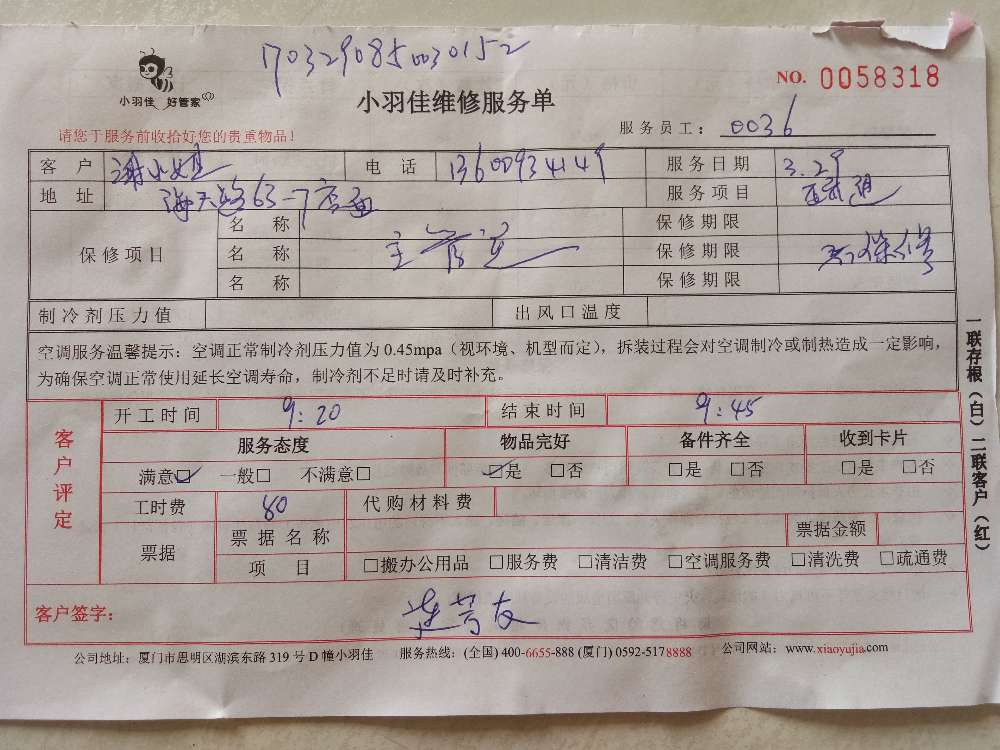 1703290850030152
NO. 0058318
小羽佳 好管家
小羽佳维修服务单
请您于服务前收拾好您的贵重物品!
服务员工: 0036
客 户 谢小姐 电 话 13600934149 服务日期 3.29
地 址 海天路63-7店面 服务项目
保修项目
名 称 保修期限
名 称 主管道 保修期限 不保修
名 称 保修期限
制冷剂压力值 出风口温度
空调服务温馨提示: 空调正常制冷剂压力值为 0.45mpa (视环境、机型而定), 拆装过程会对空调制冷或制热造成一定影响,
为确保空调正常使用延长空调寿命, 制冷剂不足时请及时补充。
客户评定
开工时间 9:20 结束时间 9:45
服务态度 物品完好 备件齐全 收到卡片
满意☑ 一般□ 不满意□ ☑是 □否 □是 □否 □是 □否
工时费 80 代购材料费
票据 票 据 名 称 票据金额
项 目 □搬办公用品 □服务费 □清洁费 □空调服务费 □清洗费 □疏通费
客户签字:
公司地址: 厦门市思明区湖滨东路 319 号 D 幢小羽佳 服务热线: (全国) 400-6655-888 (厦门) 0592-5178888 公司网站: www.xiaoyujia.com
一联存根(白) 二联客户(红)